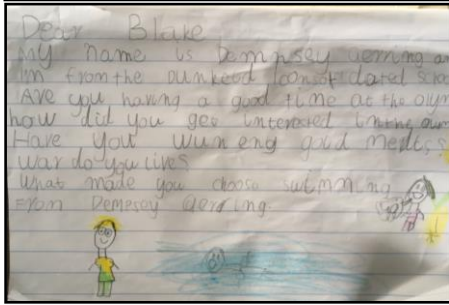 Dear Blake
My name is Dempsey aerring an
Im from the Dunkeld consoldated sc
Are you having a good time at the olym
how did you get interested in the
Have you wun eng gold medls
war do you lives
What made you choose swimming
From Dempsey aerring.